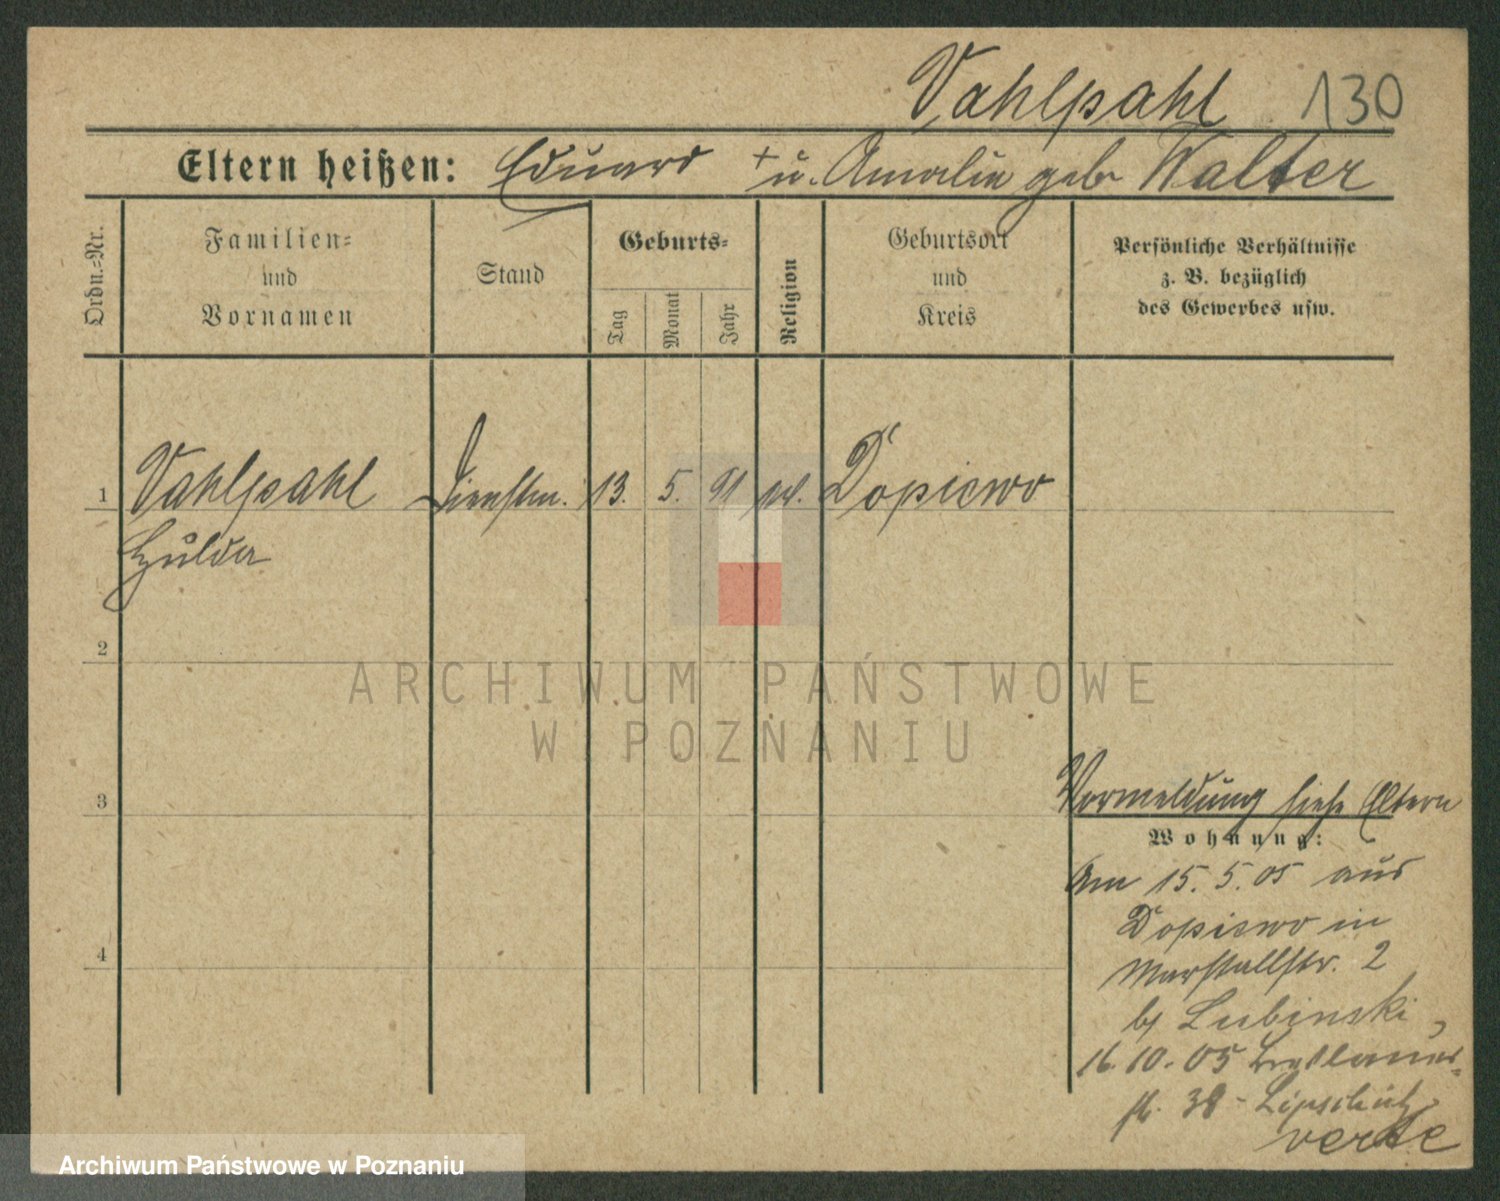 Vahlpahl 130
Eltern heißen: Eduard + u. Amalie geb Walter
Ordn.-Nr.
Familien-
und
Vornamen
Stand
Geburts-
Tag
Monat
Jahr
Religion
Geburtsort
und
Kreis
Persönliche Verhältnisse
z. B. bezüglich
des Gewerbes usw.
1 Vahlpahl Dienstm. 13. 5. 91 Dopiewo
Hulda
2
3
4
Vormeldung siehe Eltern
Wohnung:
Am 15. 5. 05 aus
Dopiewo in
Marstallstr. 2
b/ Lubinski,
16. 10. 05 Breslauer-
str. 38 - Lipschütz
verte
ARCHIWUM PAŃSTWOWE
W POZNANIU
Archiwum Państwowe w Poznaniu